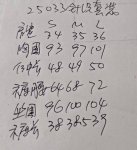 25033针织套装
S M L
衣长 34 35 36
胸围 93 97 101
48 49 50
裙腰 64 68 72
坐围 96 100 104
裙长 38 38.5 39